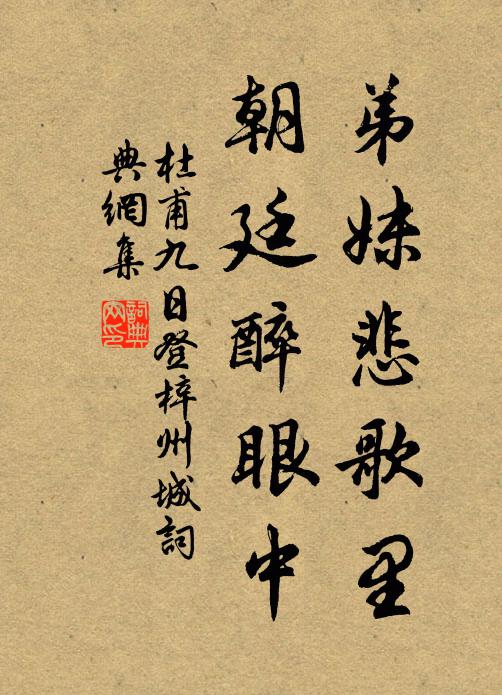 弟妹悲歌里
朝廷醉眼中
杜甫九日登梓州城詞
典網集
詞典网印